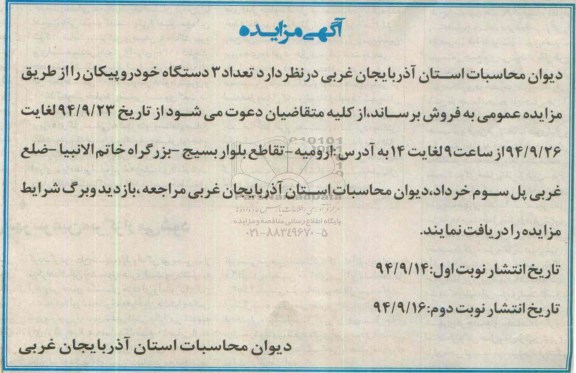 آگهی مزایده
دیوان محاسبات استان آذربایجان غربی درنظر دارد تعداد ۳ دستگاه خودرو پیکان را از طریق
مزایده عمومی به فروش برساند، از کلیه متقاضیان دعوت می شود از تاریخ ۹۴/۹/۲۳ لغایت
۹۴/۹/۲۶ از ساعت ۹ لغایت ۱۴ به آدرس: ارومیه - تقاطع بلوار بسیج - بزرگراه خاتم الانبیا - ضلع
غربی پل سوم خرداد، دیوان محاسبات استان آذربایجان غربی مراجعه، بازدید و برگ شرایط
پایگاه اطلاع رسانی مناقصه و مزایده
مزایده را دریافت نمایند.
۰۲۱-۸۸۳۴۹۶۷۰-۵
تاریخ انتشار نوبت اول: ۹۴/۹/۱۴
تاریخ انتشار نوبت دوم: ۹۴/۹/۱۶
دیوان محاسبات استان آذربایجان غربی